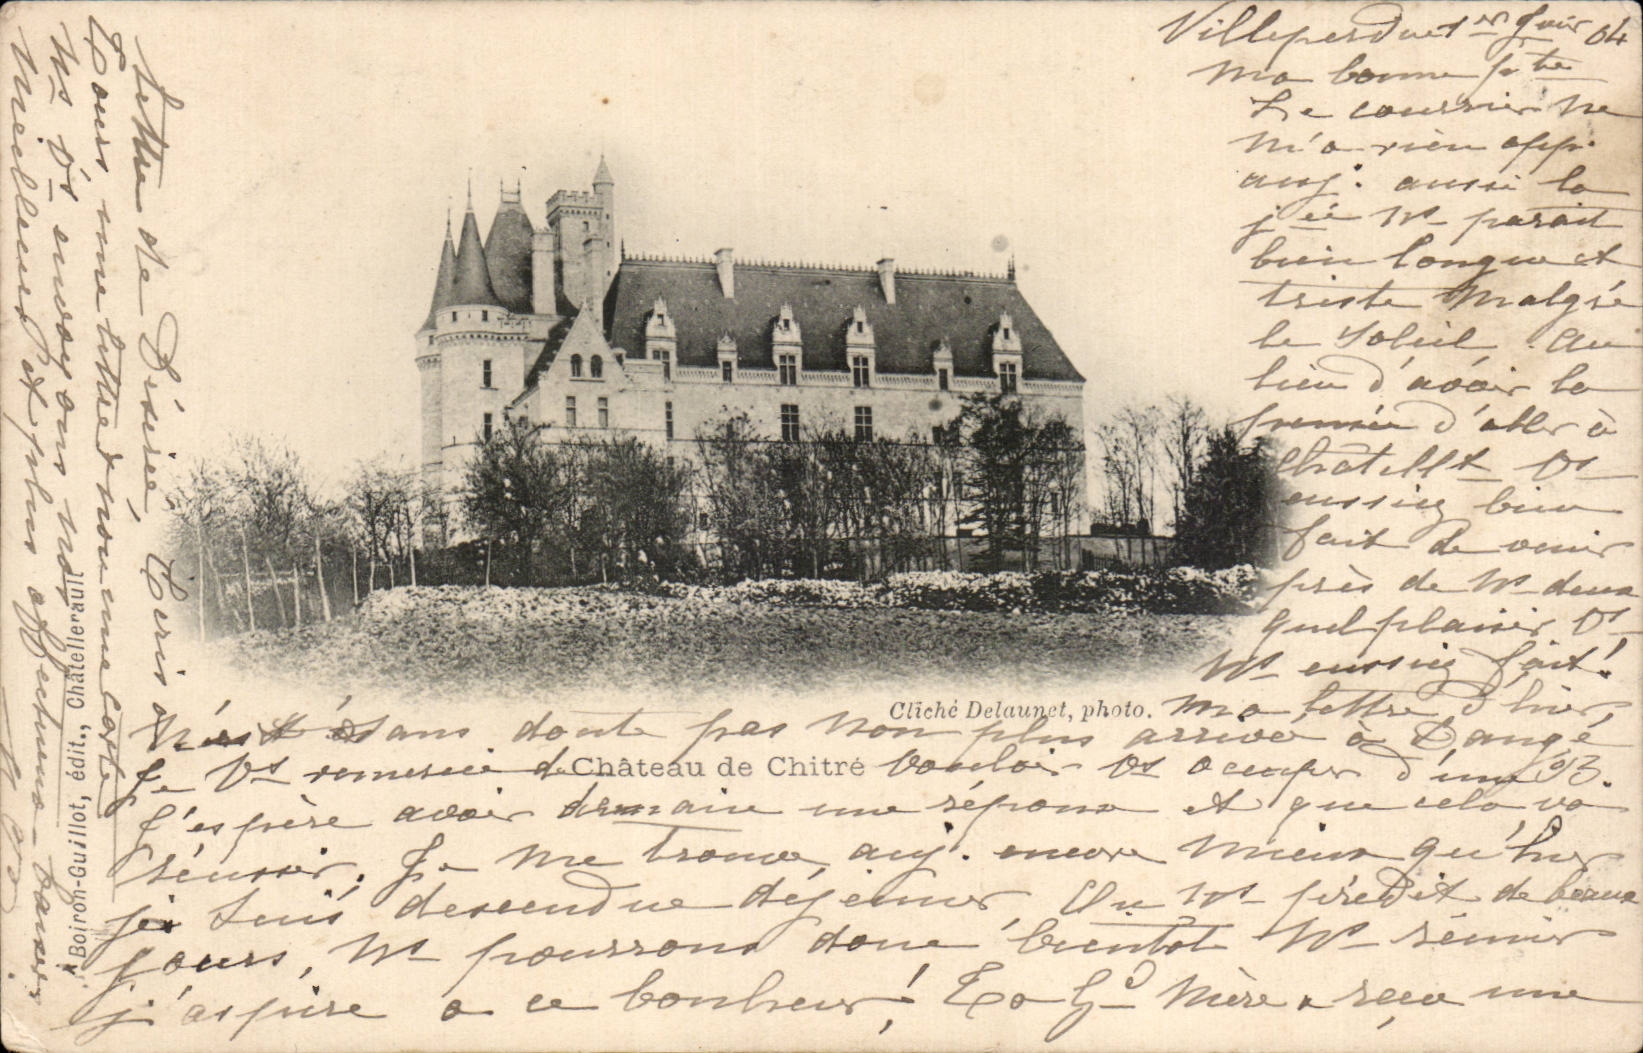 Villeperdue 1er Juin 04
ma bonne ptte
Le courrier ne
m'a rien app.
auj. aussi la
jée ns parait
bien longue et
triste malgré
le soleil. Au
lieu d'avoir la
pensée d'aller à
Chatellt vs
eussiez bien
fait de venir
près de ns deux
quel plaisir vs
ns eussiez fait!
Cliché Delaunet, photo.
ma lettre d'hier,
n'est sans doute pas non plus arrivée à Dangé
Château de Chitré
Je vs remercie de vouloir vs occuper d'une
J'espère avoir demain une réponse et que cela va
réussir. Je me trouve auj. encore mieux qu'hier
je suis descendue déjeuner, On ns prédit de beaux
jours, ns pourrons donc bientôt ns réunir
j'aspire à ce bonheur! La Gd Mère a reçu une
lettre de Désirée,
Tours, une lettre &
ns vs envoyons nos
meilleurs et plus affectueux baisers
* Boiron-Guillot, édit., Châtellerault